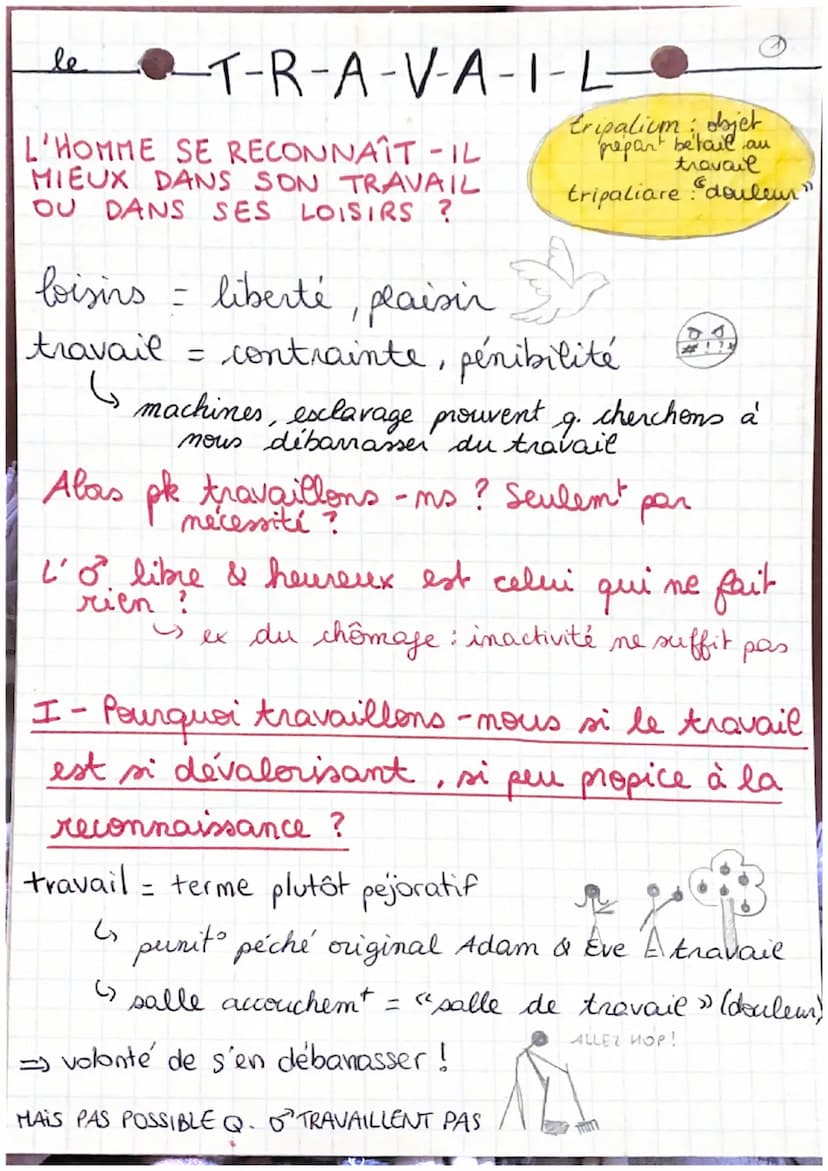 le T-R-A-V-A-I-L
1
tripalium : objet
prépart bétail au
travail
tripaliare : "douleur"
L'HOMME SE RECONNAÎT-IL
MIEUX DANS SON TRAVAIL
OU DANS SES LOISIRS ?
loisirs = liberté, plaisir
travail = contrainte, pénibilité
#!?*
↳ machines, esclavage prouvent q. cherchons à
nous débarrasser du travail
Alors pk travaillons-ns ? Seulemt par
nécessité ?
L'♂ libre & heureux est celui qui ne fait
rien ?
↳ ex du chômage : inactivité ne suffit pas
I - Pourquoi travaillons-nous si le travail
est si dévalorisant, si peu propice à la
reconnaissance ?
travail = terme plutôt péjoratif
↳ punit° péché originel Adam & Eve travail
↳ salle accouchemt = « salle de travail » (douleur)
ALLEZ HOP !
=> volonté de s'en débarrasser !
MAIS PAS POSSIBLE Q. ♂ TRAVAILLENT PAS